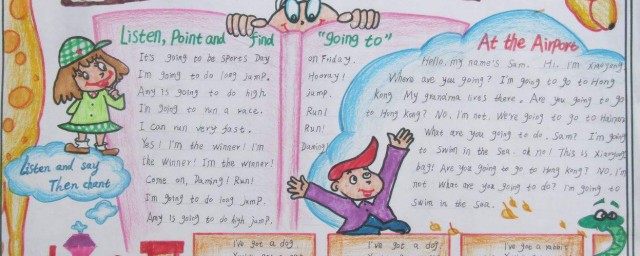 Listen, Point and find "going to"
It's going to be Sports Day
on Friday.
I'm going to do long jump.
Hooray!
Amy is going to do high
jump.
I'm going to run a race.
Run!
I can run very fast.
Run!
Yes! I'm the winner! I'm
Daming!
the winner! I'm the winner!
Come on, Daming! Run!
I'm going to do long jump.
Amy is going to do high jump.
At the Airport
Hello, my name's Sam. Hi, I'm Xiaoyong
Where are you going? I'm going to go to Hong
Kong My grandma lives there. Are you going to go
to Hong Kong? No, I'm not. We're going to go to
What are you going to do, Sam? I'm going
to swim in the sea. oh no! This is Xiaoyong
bag! Are you going to go to Hong Kong? No, I'm
not What are you going to do? I'm going to
swim in the sea.
Listen and say
Then chant
I've got a dog
I've got a dog